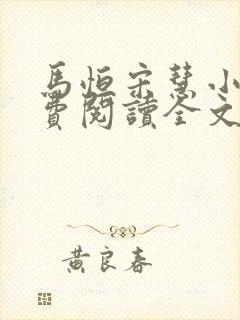 馬恒宋慧小
費閱讀全文
黃良春